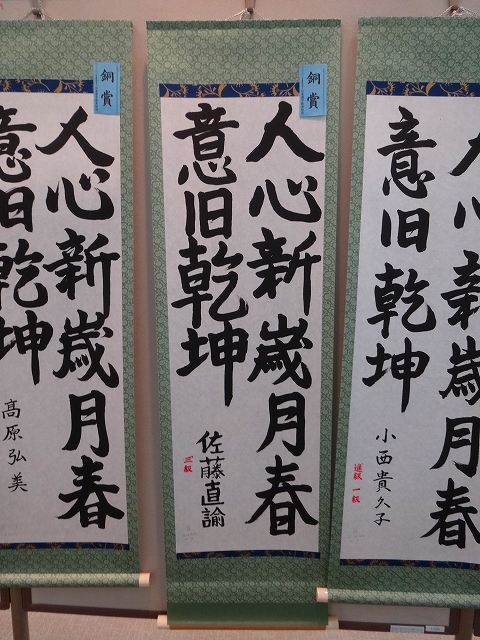 銅賞
人心新歳月春
意旧乾坤
小西貴久子
進級 一級
銅賞
人心新歳月春
意旧乾坤
佐藤直諭
三級
人心新歳月春
意旧乾坤
髙原弘美